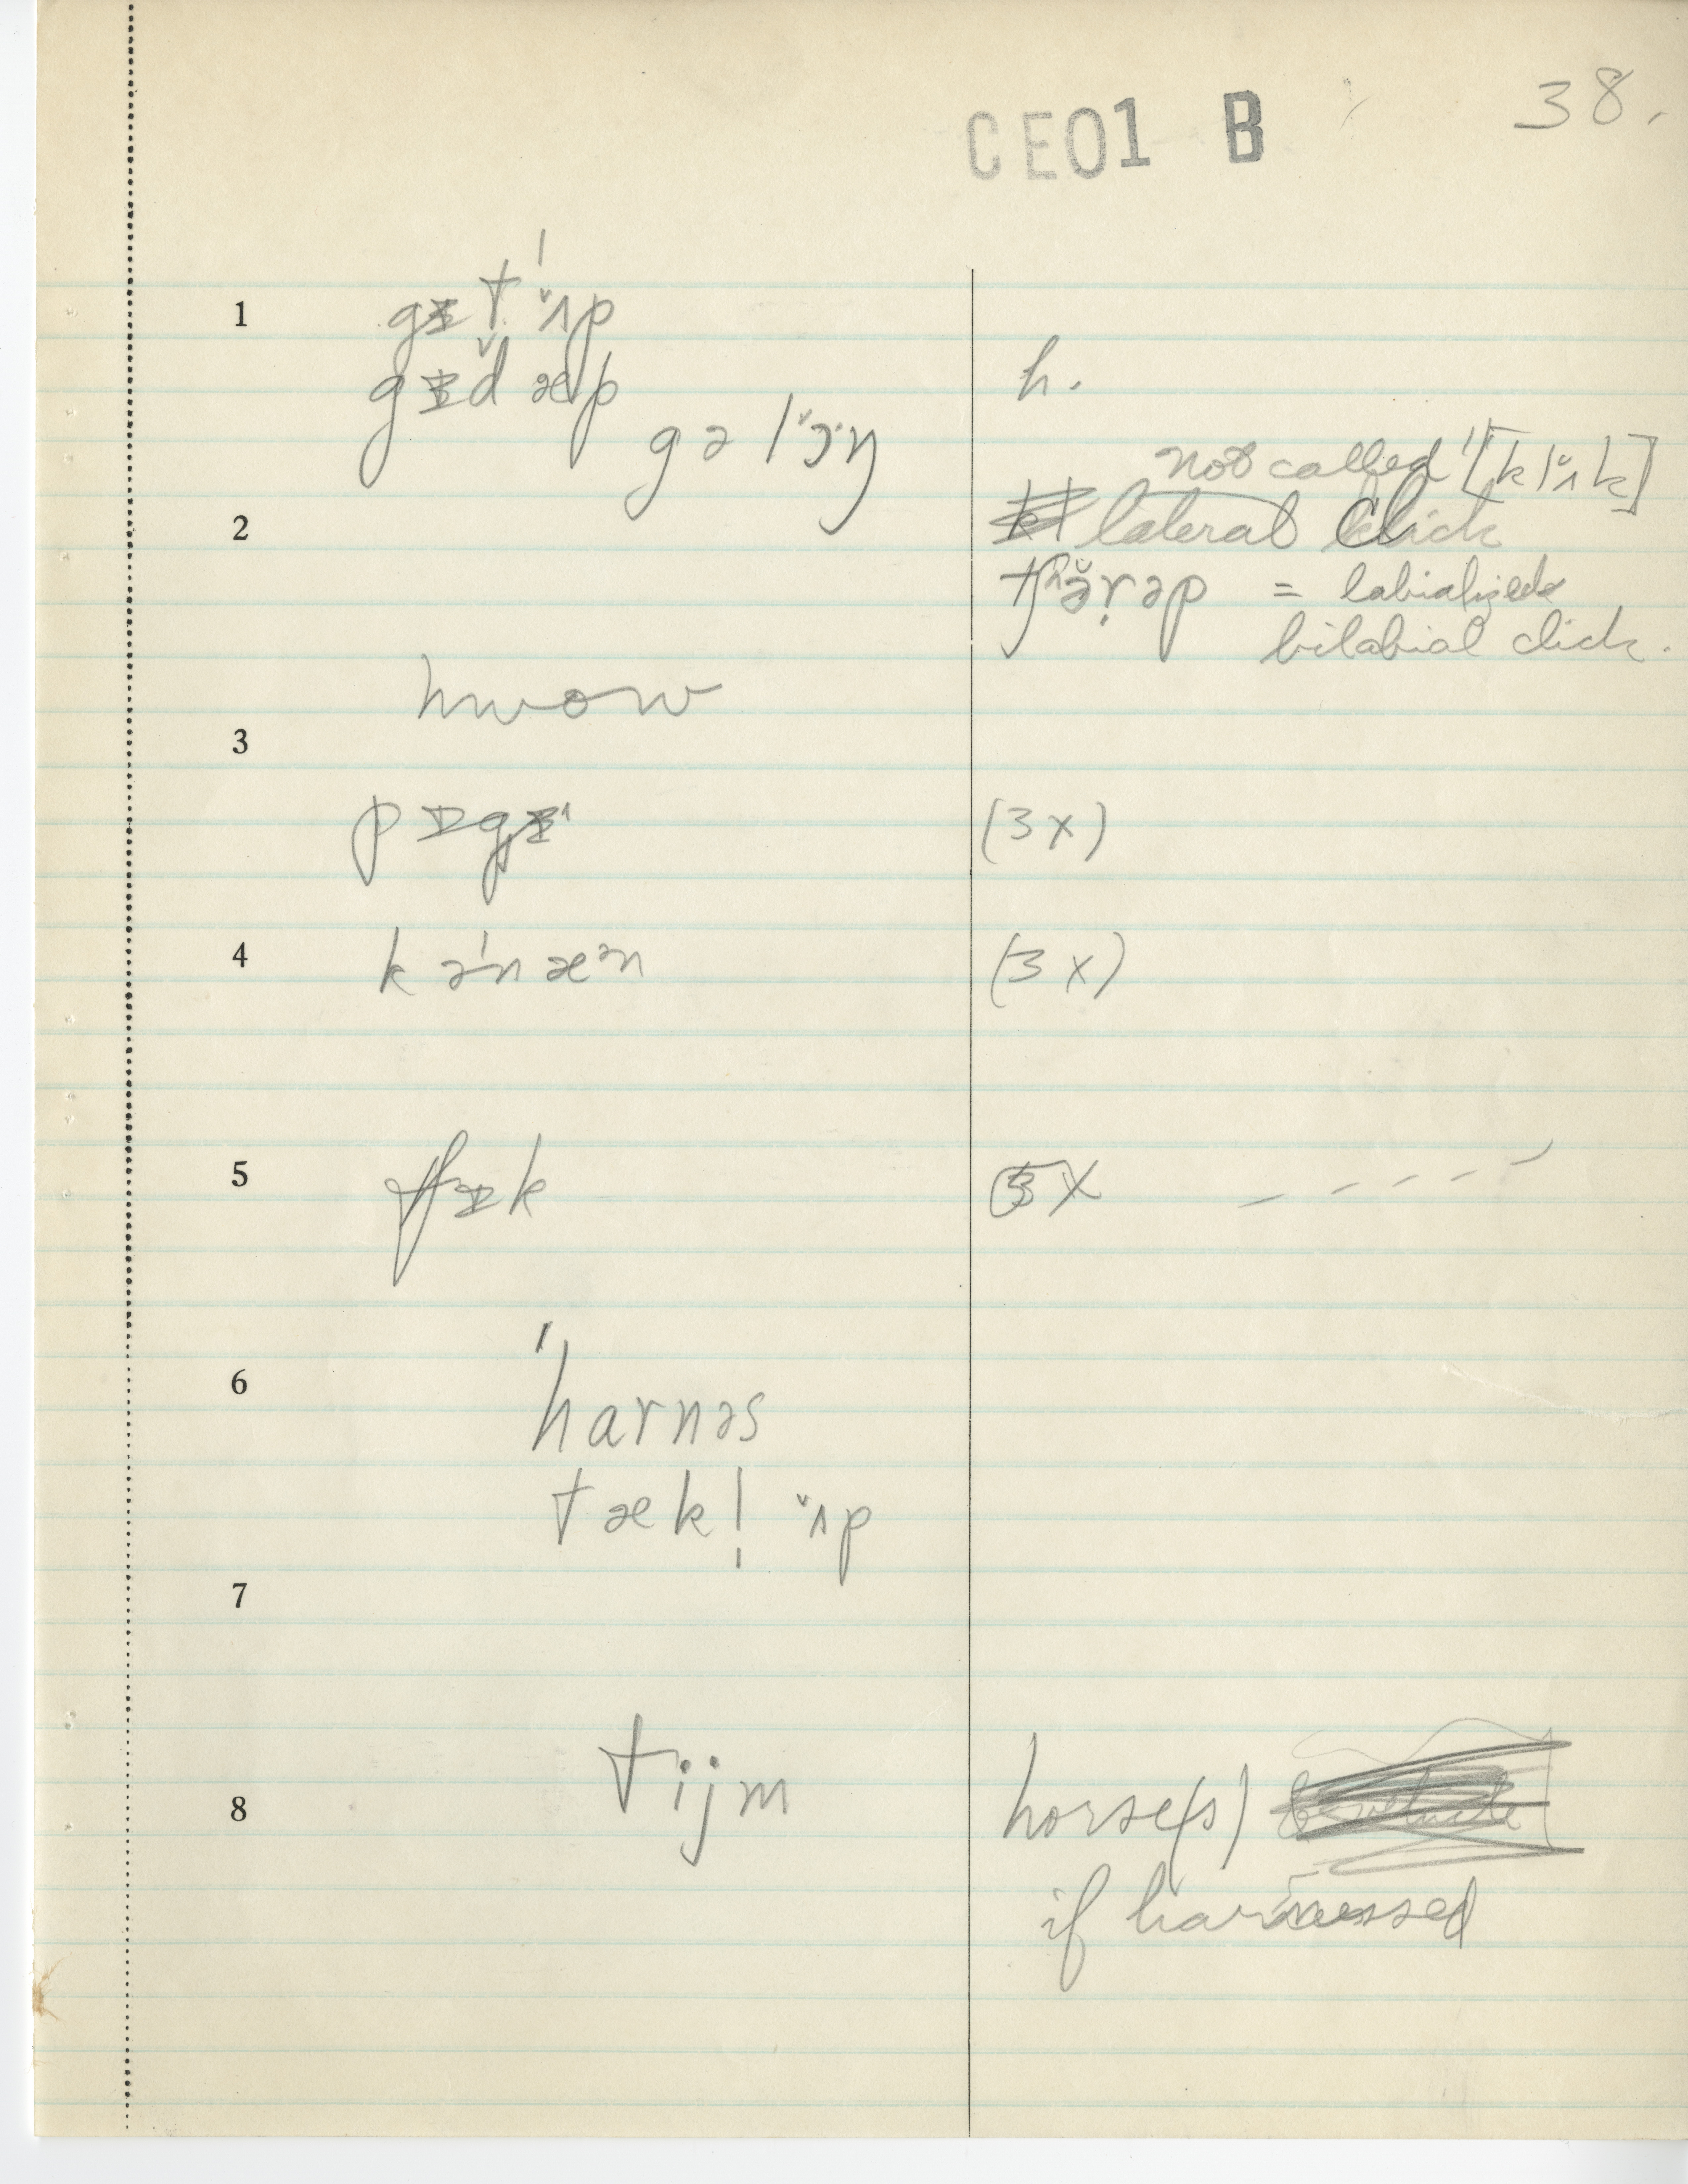 CE01 B 38.
1 gɪt ˈʌ̌p
gɪd̬ æp h.
gə lˈɔ̌ŋ
not called [klʌ̌k]
2 lateral click
tʃʰə̌ṛəp = labialized
bilabial click.
hwow
3
pɪgɪ (3x)
4 kəˈnæᵊn (3x)
5 fɪk 5X – – – – –
6 ˈharnəs
tæk! ʌ̌p
7
tijm
8 horse(s)
if harnessed